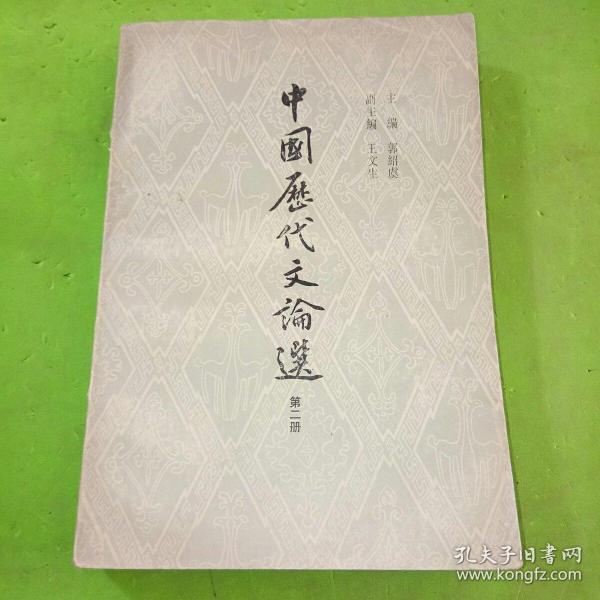 主編 郭紹虞
副主編 王文生
中國歷代文論選
第二册
孔夫子旧書网
www.kongfz.com